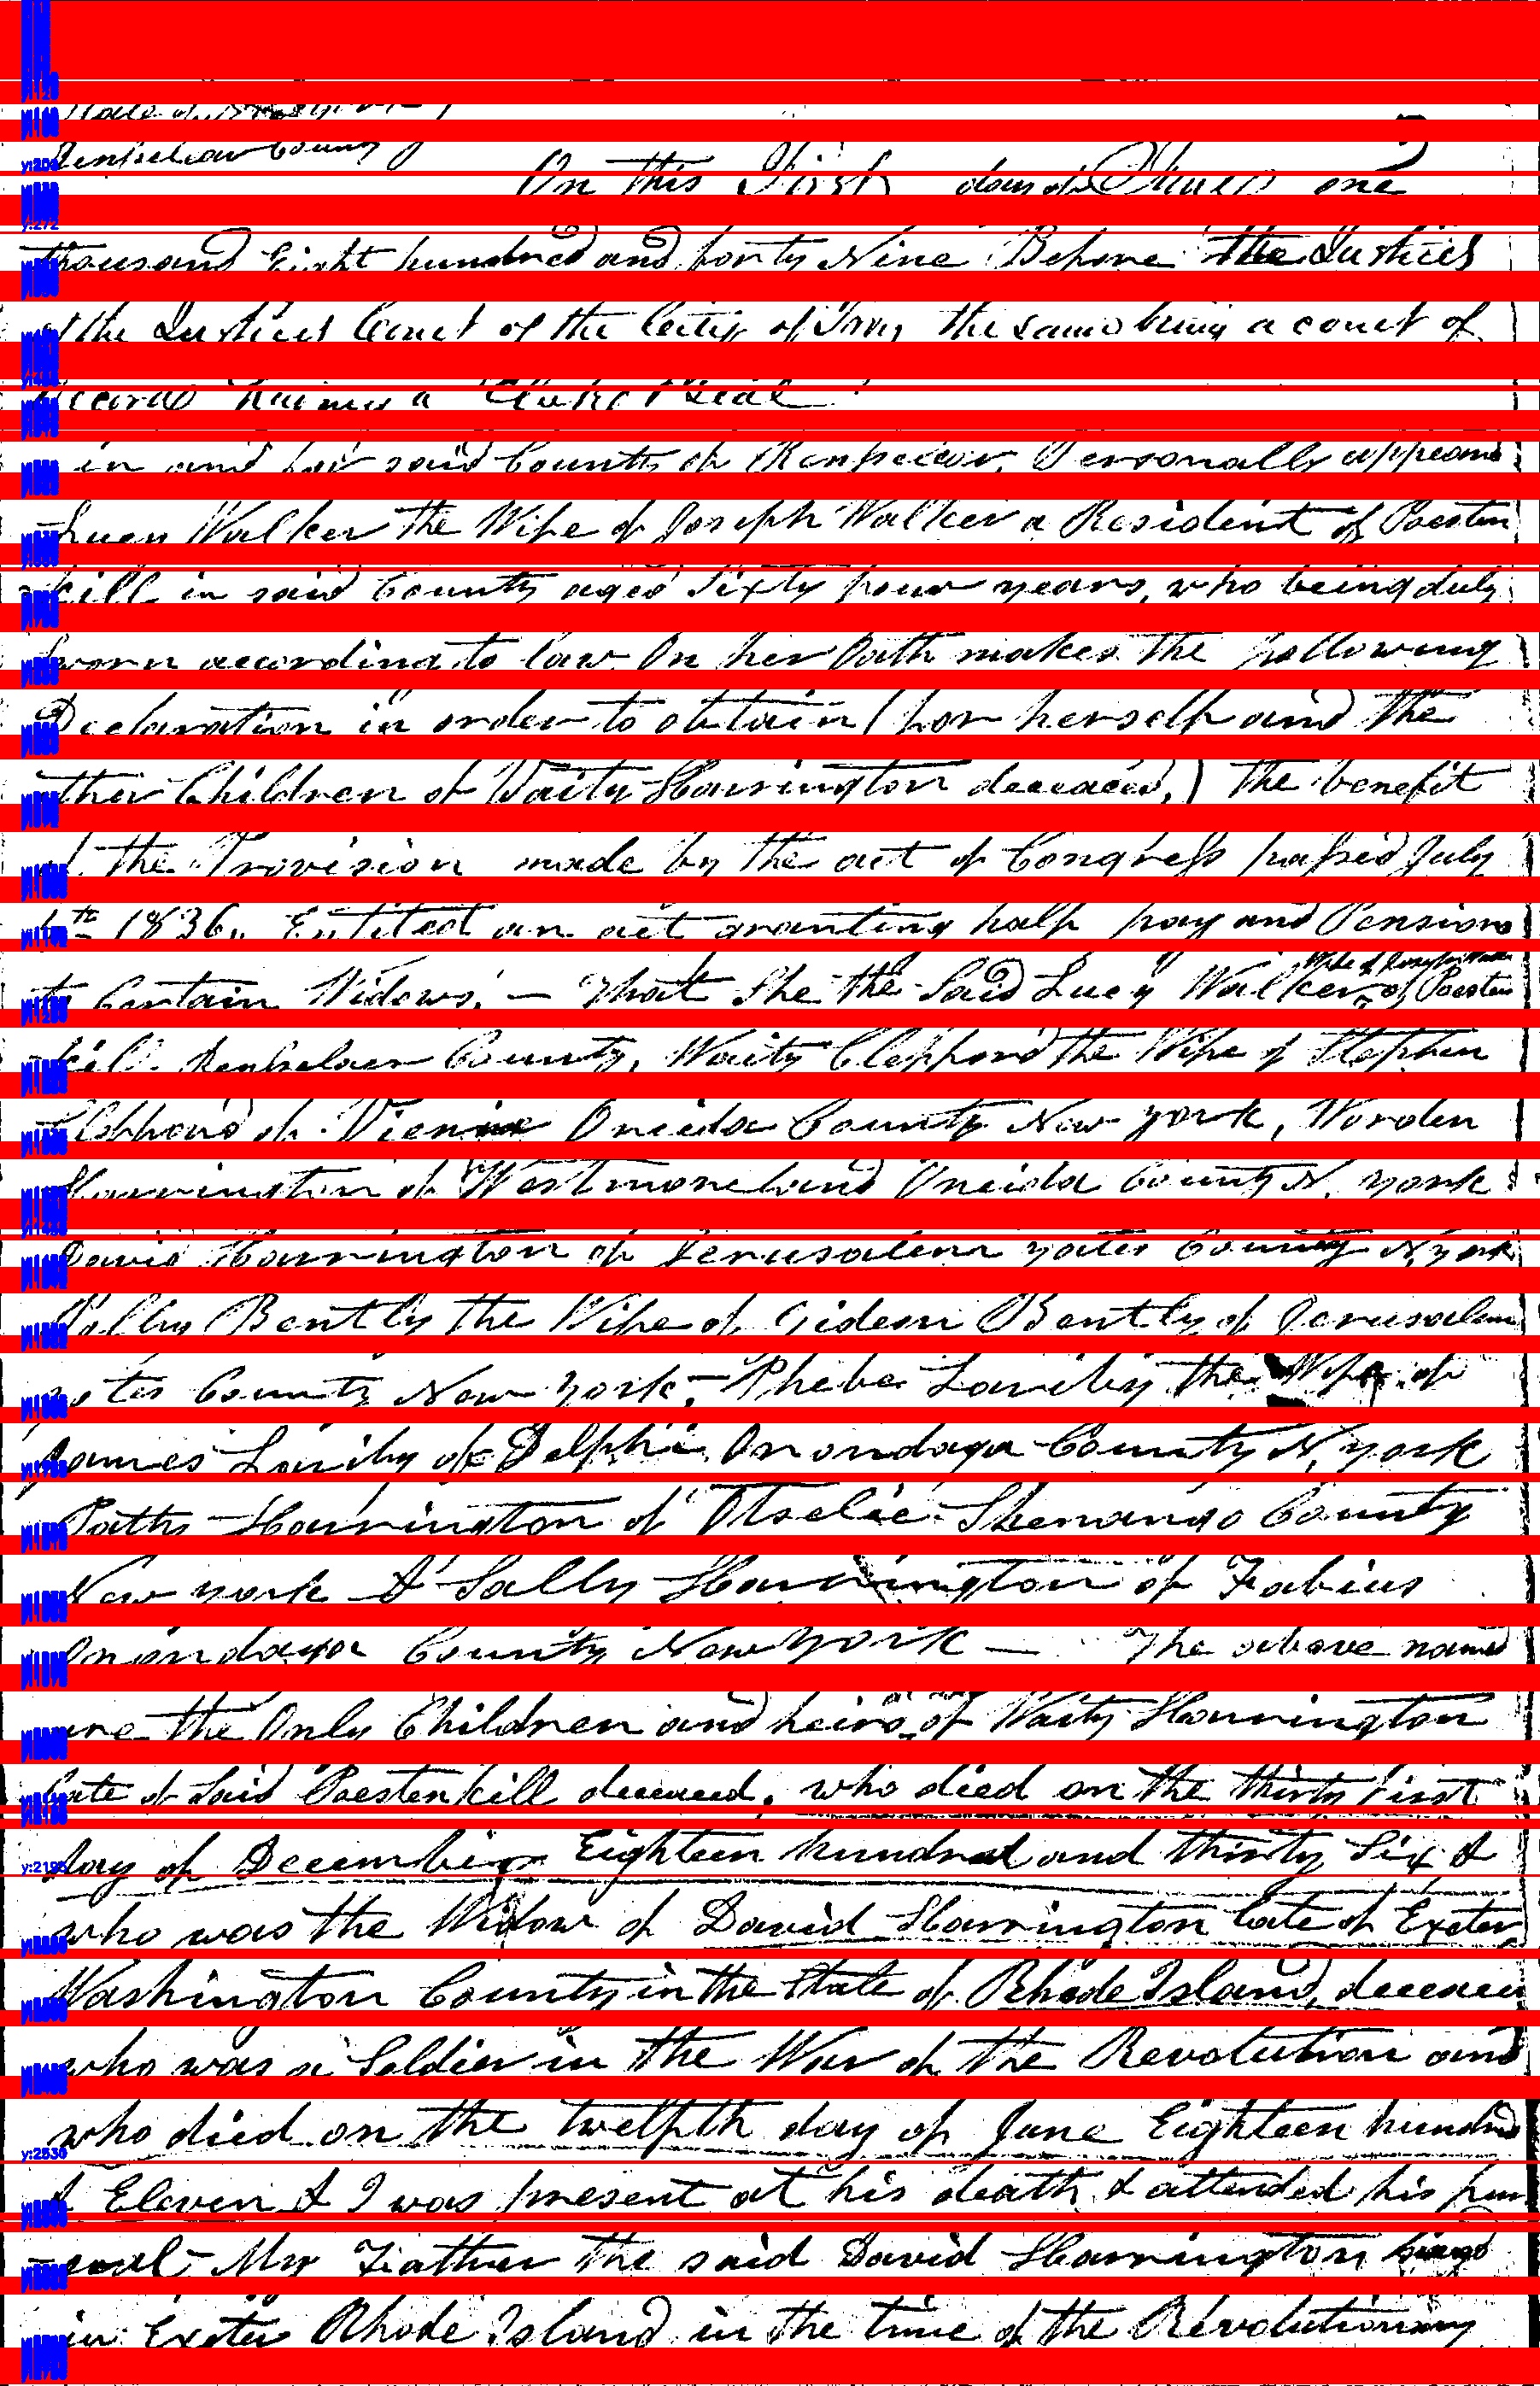 State of New York
Rensselaer County
On this First day of one
thousand Eight hundred and forty Nine Before the Justices
of the Justices Court of the City of Troy the same being a court of
Record having a Clerk & Seal
in and for said County of Rensselaer. Personally appeared
Lucy Walker the Wife of Joseph Walker a Resident of Poesten
kill in said County aged Sixty four years, who being duly
sworn according to law On her Oath makes the following
Declaration in order to obtain (for herself and the
other Children of Waity Harrington deceased,) the benefit
of the Provision made by the act of Congress passed July
4th 1836. Entitled an act granting half pay and Pensions
to Certain Widows. — That She the Said Lucy Walker, Wife of Joseph Walker of Poesten
kill Rensselaer County, Waity Clephord the Wife of Stephen
Clephord of Vienna Oneida County New York, Worden
Harrington of Westmoreland Oneida County N. York
David Harrington of Jerusalem Yates County N York
Polly Bently the Wife of Gideon Bently of Jerusalem
Yates County New York, Phebe the Wife of
James of Delphi Onondaga County N. York
Paths Harrington of Otselic Shenango County
New York & Sally Harrington of Fabius
Onondaga County New York — The above named
are the Only Children and heirs of Waity Harrington
late of Said Poestenkill deceased, who died on the thirty first
day of December Eighteen hundred and thirty Six &
who was the Widow of David Harrington late of Exeter
Washington County in the State of Rhode Island, deceased
who was a Soldier in the War of the Revolution and
who died on the twelfth day of June Eighteen hundred
& Eleven & I was present at his death & attended his fun
-eral - My Father the said David Harrington
in Exeter Rhode Island in the time of the Revolutionary